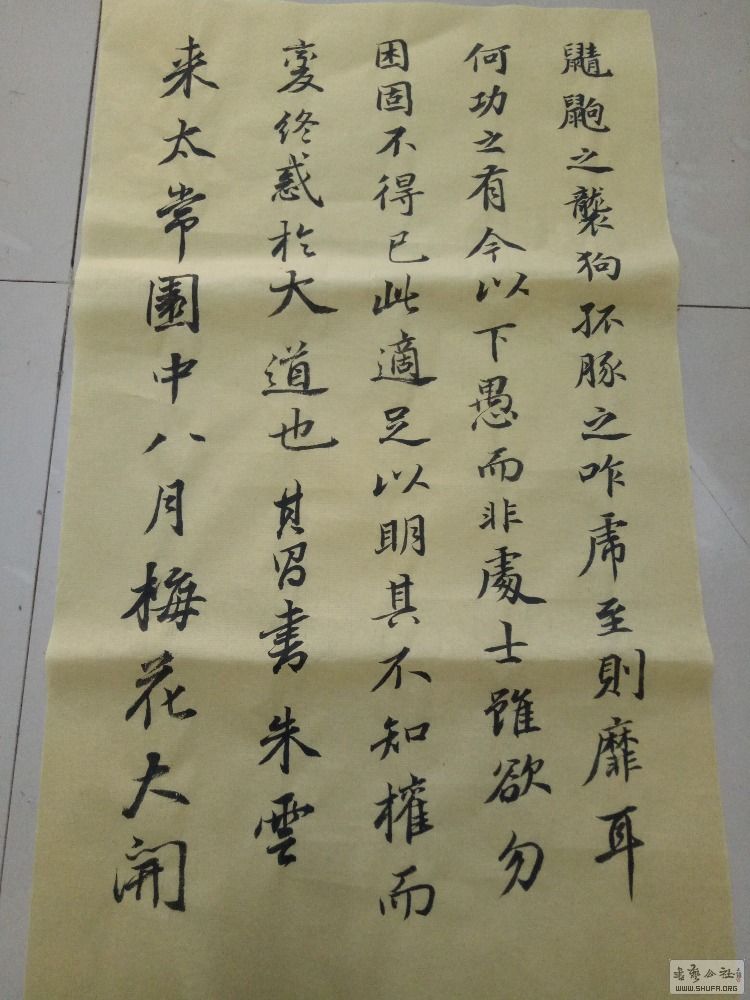 鼱鼩之襲狗孤豚之咋虎至則靡耳
何功之有今以下愚而非處士雖欲勿
困固不得已此適足以明其不知權而
變終惑於大道也其昌書朱雲
来太常園中八月梅花大開
书艺公社
WWW.SHUFA.ORG